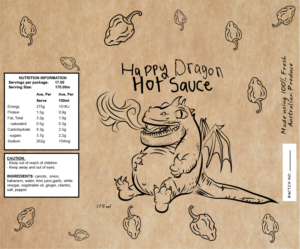 Happy Dragon
Hot Sauce
NUTRITION INFORMATION
Servings per package: 17.00
Serving Size: 170.00m
Ave. Per Ave. Per
Serve 100ml
Energy
Protein
Fat, Total
- saturated
Carbohydrate
- sugars
Sodium
CAUTION
- Keep out of reach of children.
- Keep away and out of eyes.
INGREDIENTS: carrots, onion,
habanero, water, lime juice, garlic, white
vinegar, vegetable oil, ginger, cilantro,
salt, pepper
175ml
Made using 100% Fresh
Australian Produce
BATCH NO